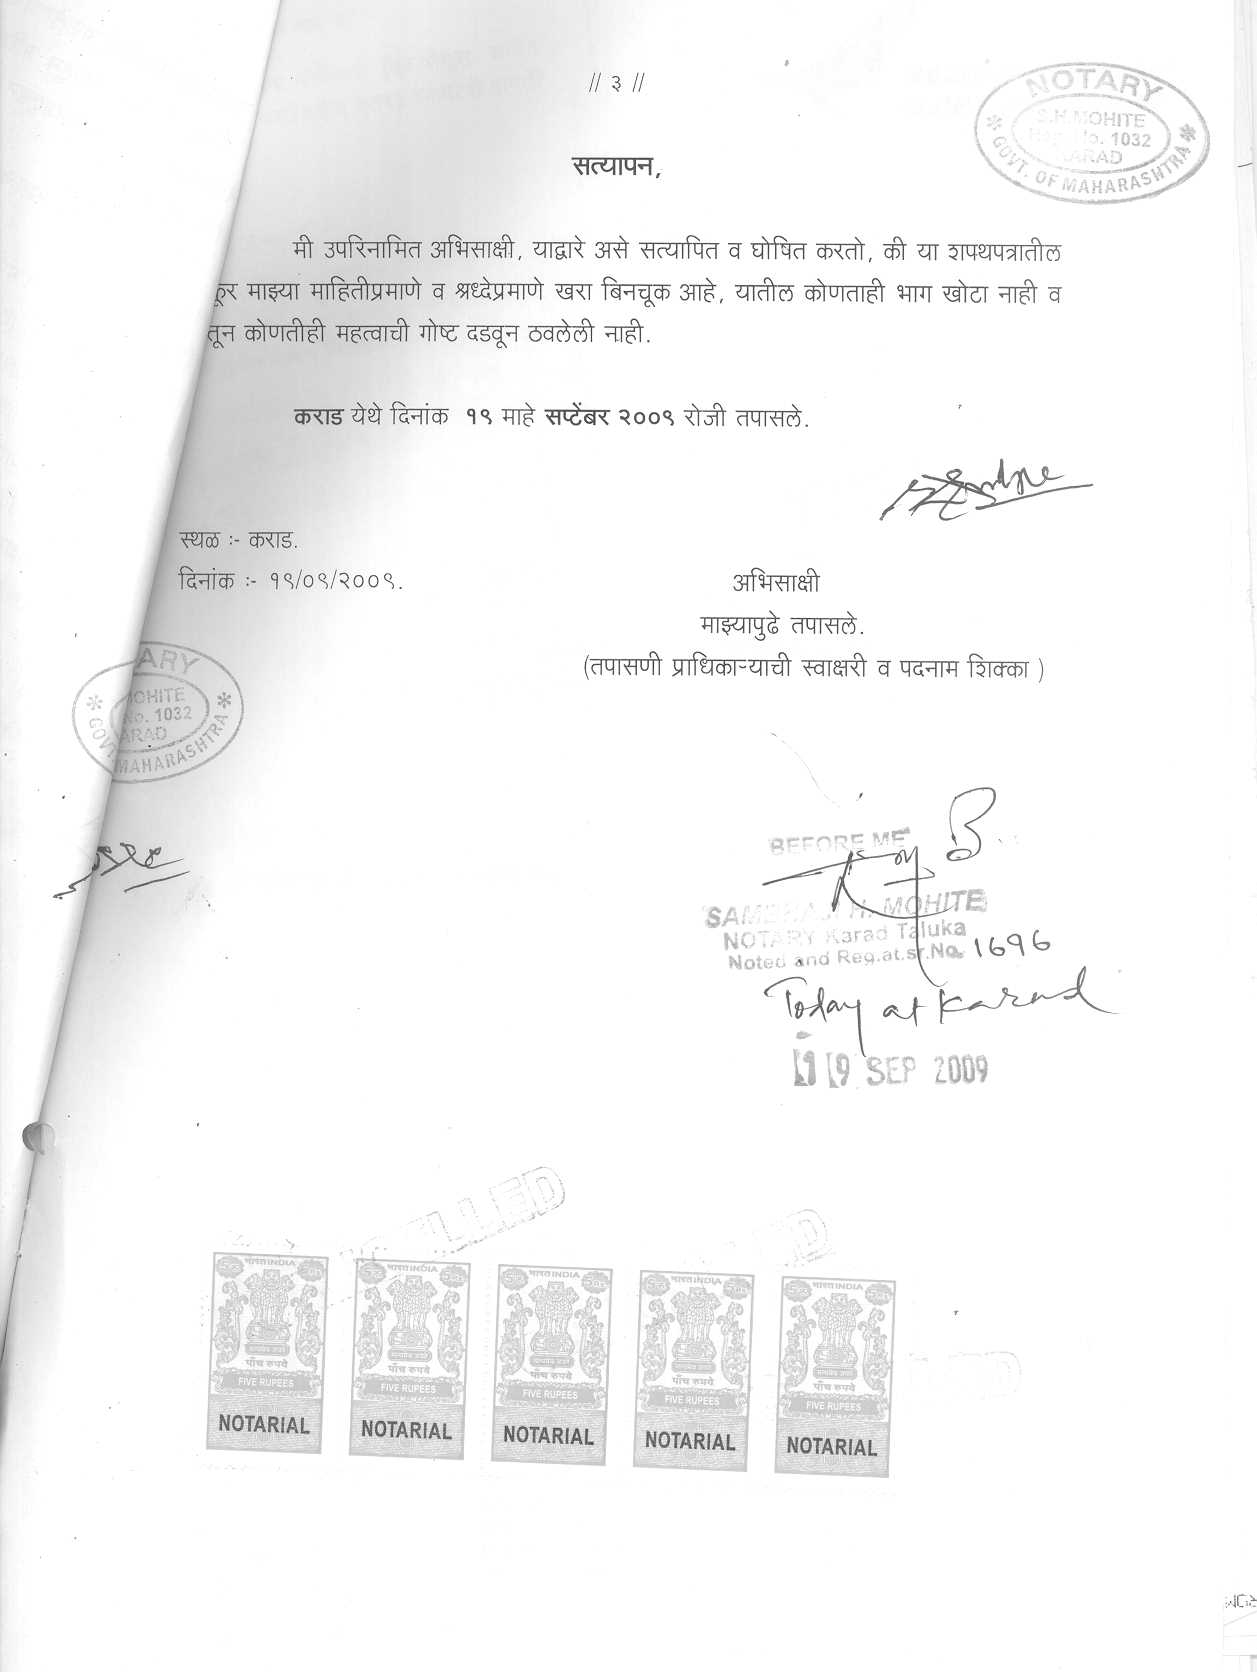 // ३ //
NOTARY
S.H.MOHITE
Reg. No. 1032
KARAD
GOVT. OF MAHARASHTRA
सत्यापन,
मी उपरिनामित अभिसाक्षी, याद्वारे असे सत्यापित व घोषित करतो, की या शपथपत्रातील
कूर माझ्या माहितीप्रमाणे व श्रध्देप्रमाणे खरा बिनचूक आहे, यातील कोणताही भाग खोटा नाही व
तून कोणतीही महत्वाची गोष्ट दडवून ठवलेली नाही.
कराड येथे दिनांक १९ माहे सप्टेंबर २००९ रोजी तपासले.
स्थळ :- कराड.
दिनांक :- १९/०९/२००९.
अभिसाक्षी
माझ्यापुढे तपासले.
(तपासणी प्राधिकाऱ्याची स्वाक्षरी व पदनाम शिक्का )
ARY
MOHITE
No. 1032
ARAD
GOVT. MAHARASHTRA
BEFORE ME
H. MOHITE
NOTARY Karad Taluka
Noted and Reg.at.sr.No. 1696
Today at Karad
19 SEP 2009
ELLED
ED
भारत INDIA भारत INDIA भारत INDIA भारत INDIA भारत INDIA
पाँच रुपये पाँच रुपये पाँच रुपये पाँच रुपये पाँच रुपये
FIVE RUPEES FIVE RUPEES FIVE RUPEES FIVE RUPEES FIVE RUPEES
NOTARIAL NOTARIAL NOTARIAL NOTARIAL NOTARIAL